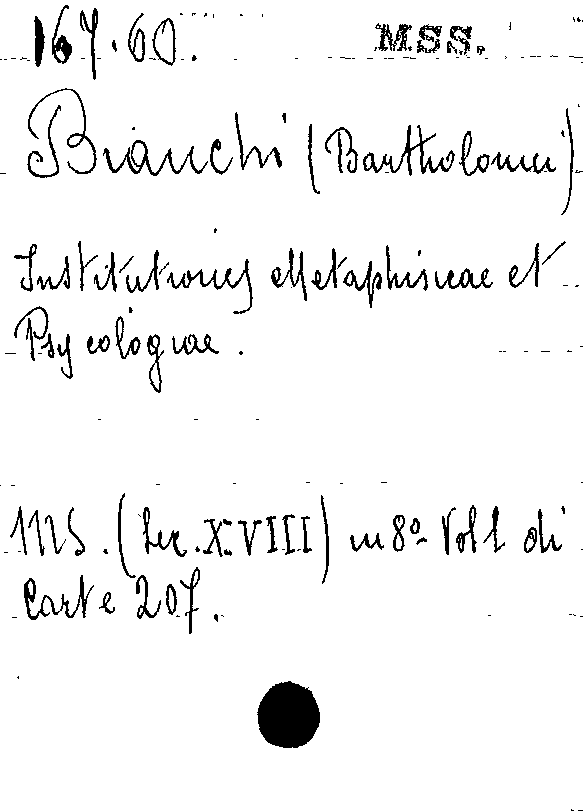 167.60. MSS.
Bianchi (Bartholomei)
Institutiones Metaphisicae et
Psycologiae.
MS. (Sec. XVIII) in 8º Vol 1 di
Carte 207.